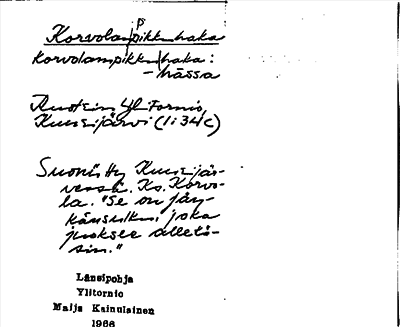 p
Korvolampikkuhaka
Korvolampikkuhaka:
-hässa
Ylitornio,
Kuusijärvi (1:34 c)
Suoniitty Kuusijär-
vessä. Ks. Korvo-
la. "Se on jän-
joka
juoksee
sin."
Länsipohja
Ylitornio
Maija Kainulainen
1966